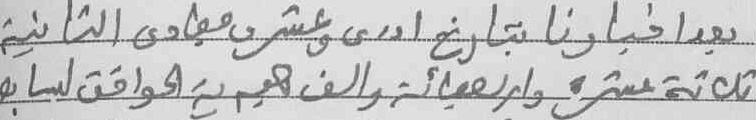 بعد اخبارنا بتاريخ احدى وعشرى جمادى الثانية
ثلاثة عشر واربعمائة والف هجرية الموافق لسابع